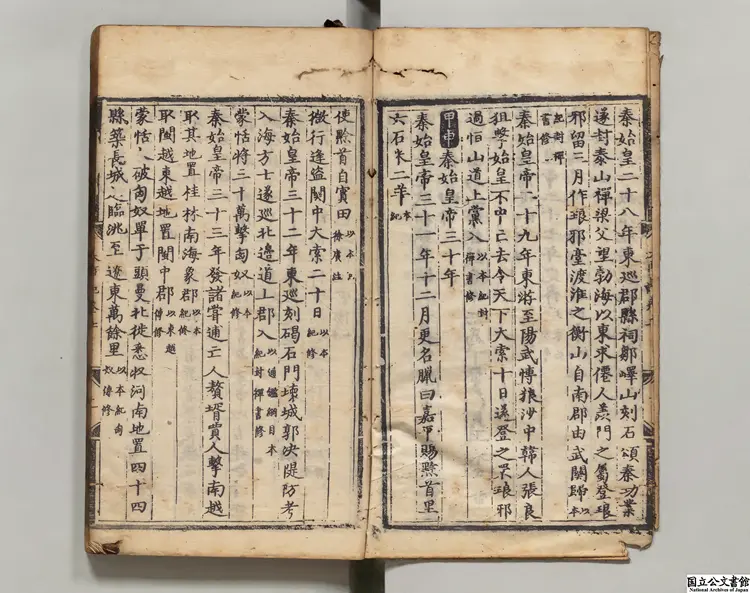 秦始皇二十八年東巡郡縣祠鄒嶧山刻石頌秦功業
遂封泰山禪梁父望勃海以東求僊人羨門之屬登琅
邪留三月作琅邪臺渡淮之衡山自南郡由武關歸以本
紀封禪書修
秦始皇帝二十九年東將至陽武慱狼沙中韓人張良
狙擊始皇不中亡去令天下大索十日遂登之罘琅邪
過恒山道上黨入以本紀封禪書修
甲申秦始皇帝三十年
秦始皇帝三十一年十二月更名臘曰嘉平賜黔首里
六石米二羊本紀
使黔首自實田以本紀徐廣注
微行逢盜關中大索二十日以本紀修
秦始皇帝三十二年東巡刻碣石門壞城郭決隄防考
入海方士遂巡北邊道上郡入以通鑑綱目本紀封禪書修
蒙恬將三十萬擊匈奴以本紀修
秦始皇帝三十三年發諸嘗逋亡人贅壻賈人擊南越
取其地置桂林南海象郡以本紀修
取閩越東越地置閩中郡以東越傳修
蒙恬破匈奴單于頭曼北徙悉收河南地置四十四
縣築長城之臨洮至遼東萬餘里以本紀匈奴傳修
国立公文書館
National Archives of Japan